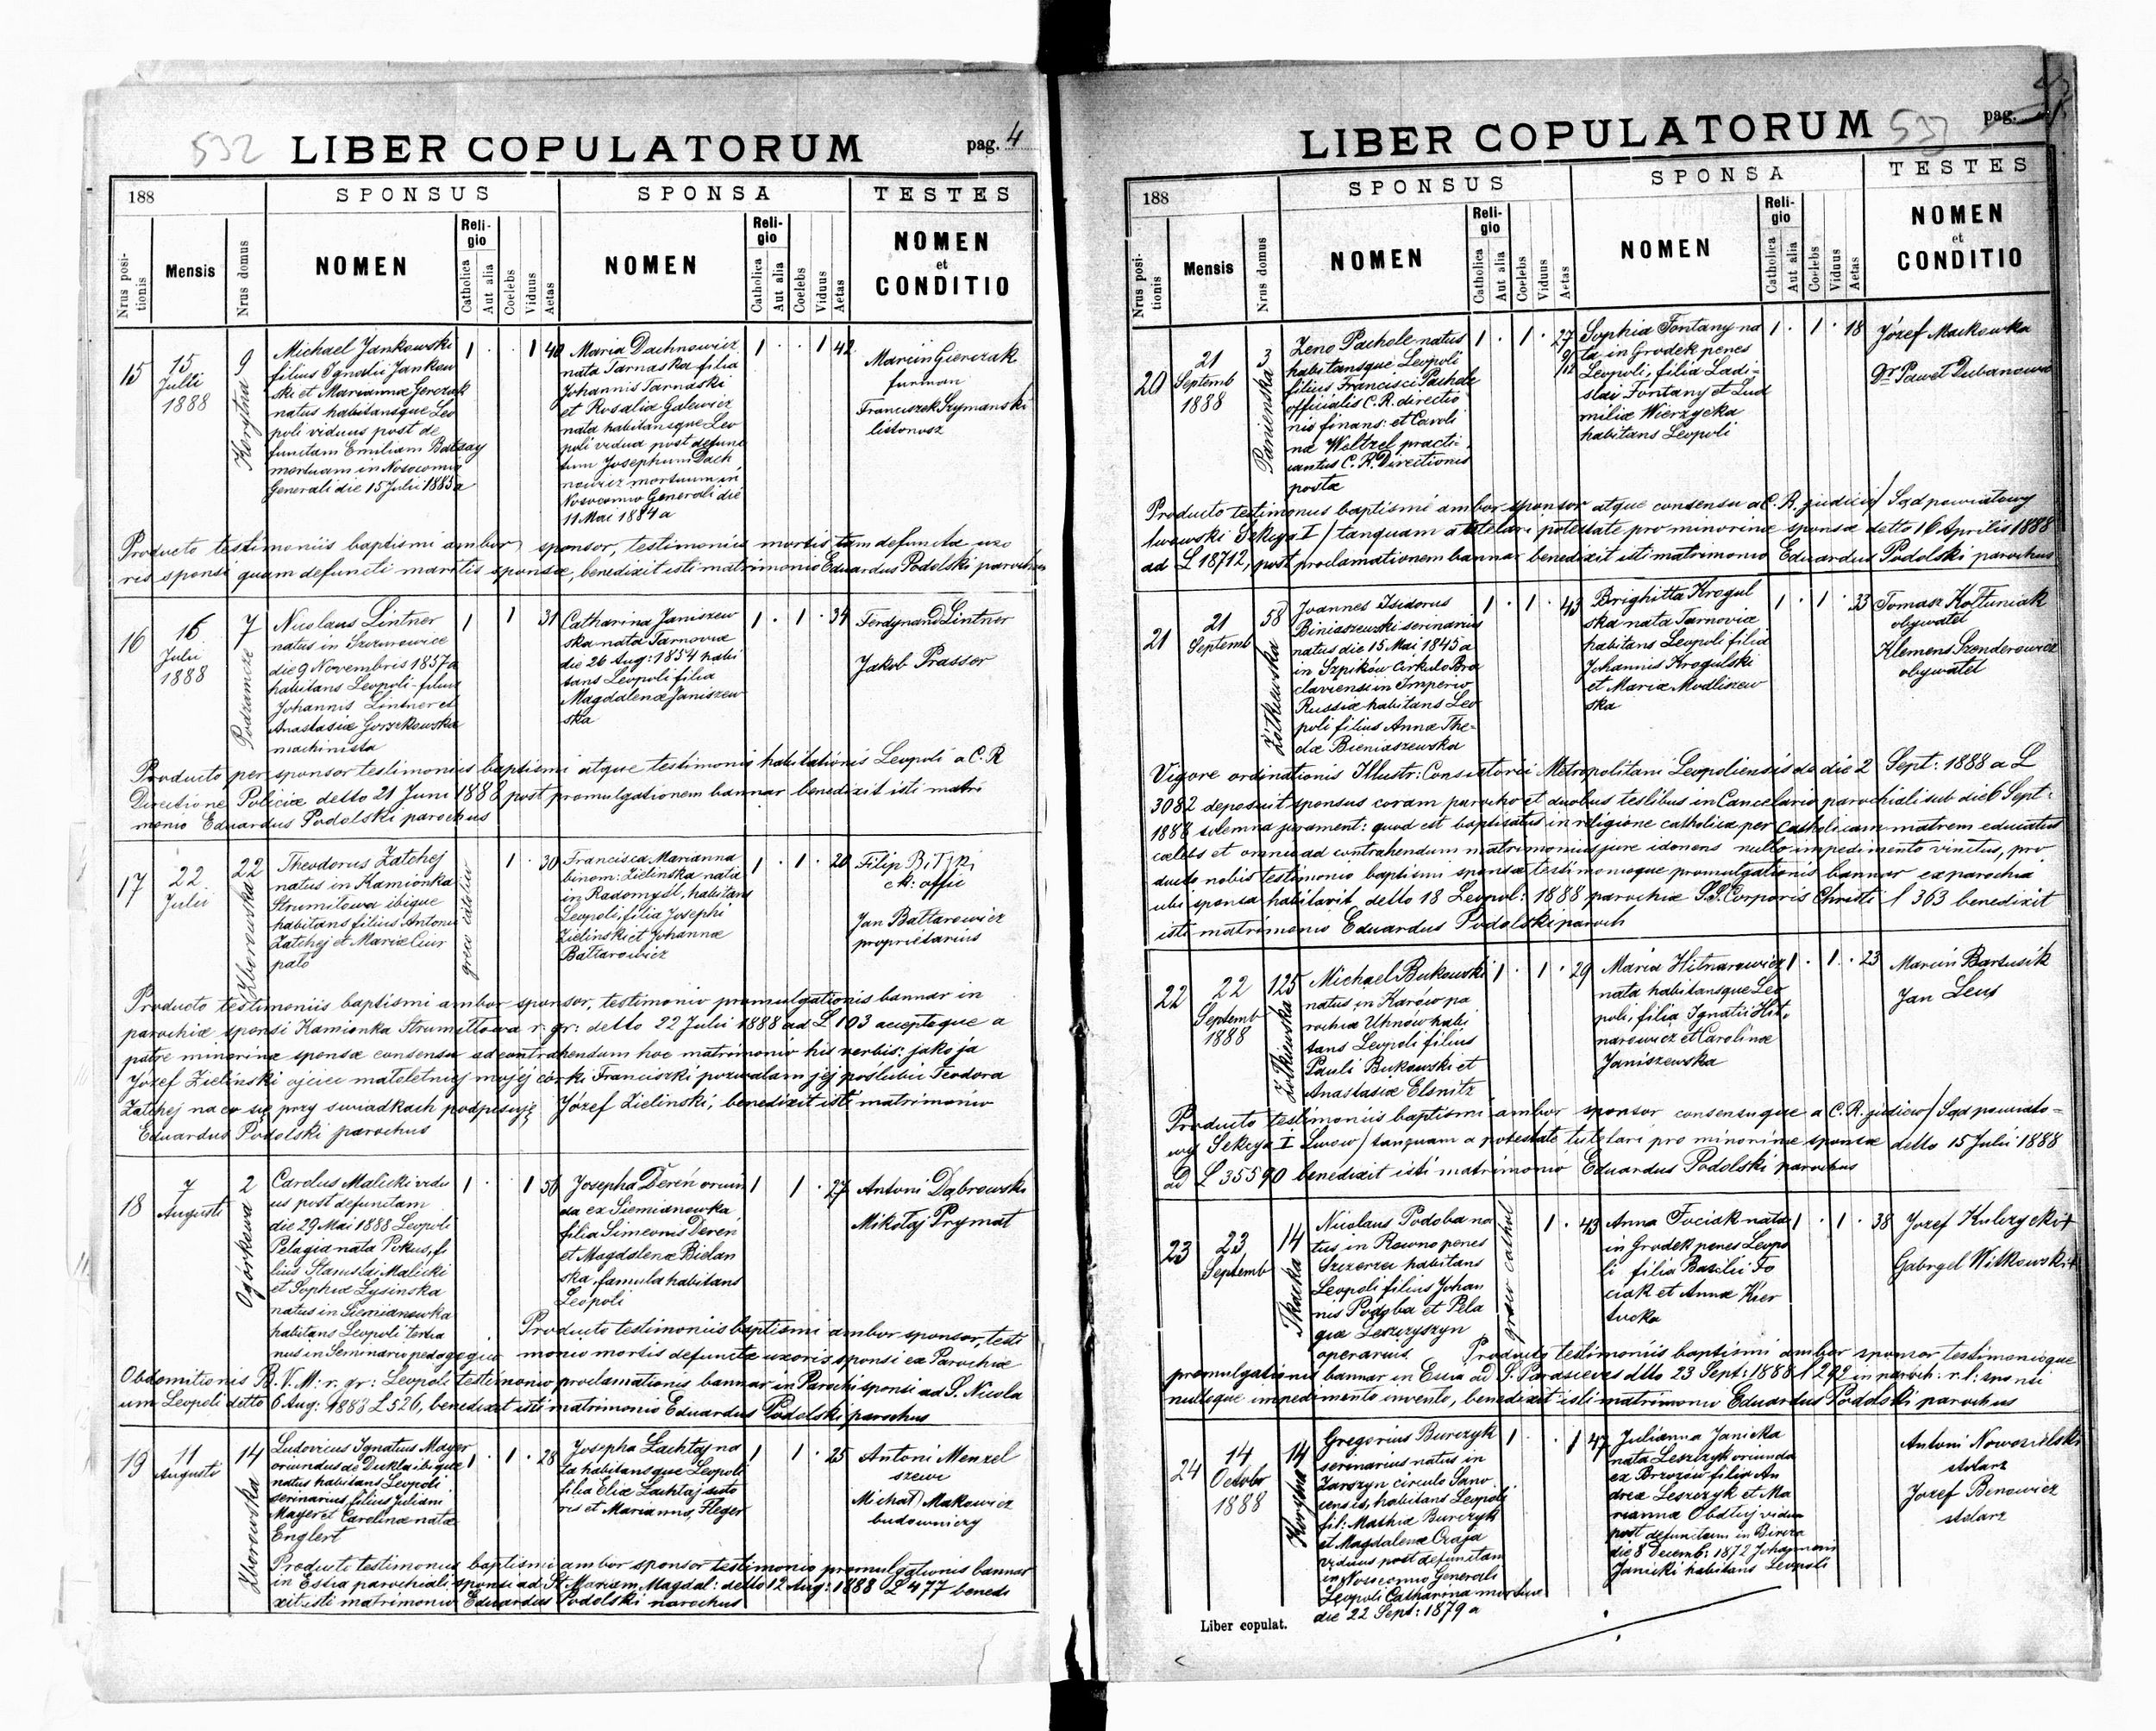 532 LIBER COPULATORUM pag. 4
188
SPONSUS
SPONSA
TESTES
Nrus positionis
Mensis
Nrus domus
NOMEN
Religio
Catholica
Aut alia
Coelebs
Viduus
Aetas
NOMEN
Religio
Catholica
Aut alia
Coelebs
Viduus
Aetas
NOMEN
et
CONDITIO
15
15
Julli
1888
9
Korytna
Michael Jankowski
filius Ignatii Jankow
ski et Mariannæ Gerczak
natus habitansque Leo
poli viduus post de
functam Emiliam
mortuam in Nosocomio
Generali die 15 Julii 1885 a
1 . . 1 40
Maria Dachnowicz
nata Tarnaska filia
Johannis Tarnaski
et Rosaliæ Galewicz
nata habitansque Leo
poli vidua post defunc
tum Josephum Dach
nowicz mortuum in
Nosocomio Generali die
11 Mai 1884 a
1 . . 1 42
Marcin Gierczak
furman
Franciszek Szymanski
listonosz
Producto testimoniis baptismi ambor sponsor, testimoniis mortis tam defunctæ uxo
ris sponsi quam defuncti maritis sponsæ, benedixit isti matrimonio Eduardus Podolski parochus
16
16
Julii
1888
7
Podzamcze
Nicolaus Lintner
natus in Szczurowice
die 9 Novembris 1857 a
habitans Leopoli filius
Johannis Lintner et
Anastasiæ Gorzkowska
machinista
1 1 31
Catharina Janiszew
ska nata Tarnoviæ
die 26 Aug: 1854 habi
tans Leopoli filia
Magdalenæ Janiszew
ska
1 . 1 . 34
Ferdynand Lintner
Jakob Prassor
Producto per sponsor testimoniis baptismi atque testimonio habitationis Leopoli a C. R
Directione Policiæ detto 21 Juni 1888 post promulgationem bannar benedixit isti matri
monio Eduardus Podolski parochus
17
22
Julii
22
Zborowska
Theodorus Zatchej
natus in Kamionka
Strumilowa ibique
habitans filius Antonii
Zatchej et Mariæ Ciur
pato
greco catolico
1 . 30
Francisca Marianna
binom: Zielinska nata
in Radomyśl, habitans
Leopoli, filia Josephi
Zielinski et Johannæ
Battarowicz
1 . 1 . 20
Filip
ck: offic
Jan Battarowicz
proprietarius
Producto testimoniis baptismi ambor sponsor, testimonio promulgationis bannar in
parochiæ sponsi Kamionka Strumiłłowa r. gr: detto 22 Julii 1888 ad L 103 acceptoque a
patre minorinæ sponsæ consensu ad contrahendum hoc matrimonio his verbis: jako ja
Józef Zielinski ojciec małoletniej mojej córki Franciszki pozwalam jej poślubić Teodora
Zatchej na co się przy swiadkach podpisuję Józef Zielinski, benedixit isti matrimonio
Eduardus Podolski parochus
18
7
Augusti
2
Ogórkowa
Carolus Malicki vidu
us post defunctam
die 29 Mai 1888 Leopoli
Pelagia nata Pokus, fi
lius Stanislai Malicki
et Sophiæ Lysinska
natus in Siemianowka
habitans Leopoli tertia
nus in Seminario pedagogico
1 . 1 56
Josepha Dereń oriun
da ex Siemianowka
filia Simeonis Dereń
et Magdalenæ Bielan
ska famula habitans
Leopoli
1 1 . 27
Antoni Dąbrowski
Mikołaj Prymat
Producto testimoniis baptismi ambor sponsor, testi
monio mortis defunctæ uxoris sponsi ex Parochiæ
Obdomitionis B. V. M: r. gr: Leopoli testimonio proclamationis bannar in Parochi sponsi ad S. Nicola
um Leopoli detto 6 Aug: 1888 L 526, benedixit isti matrimonio Eduardus Podolski parochus
19
11
Augusti
14
Zborowska
Ludovicus Ignatius Mayer
oriundus de Dukla ibique
natus habitans Leopoli
serinarius, filius Juliani
Mayer et Carolinæ natæ
Englert
1 . 1 . 28
Josepha Lachtaj na
ta habitansque Leopoli
filia Eliæ Lachtaj suto
ris et Mariannæ Fleger
1 1 . 25
Antoni Menzel
szewc
Michał Makowicz
budowniczy
Producti testimoniis baptismi ambor sponsor testimonio promulgationis bannar
in Essia parochiali sponsi ad St. Mariam Magdal: detto 12 Aug: 1888 L 477 bened
ixit isti matrimonio Eduardus Podolski parochus
LIBER COPULATORUM 533 pag.
188
SPONSUS
SPONSA
TESTES
Nrus positionis
Mensis
Nrus domus
NOMEN
Religio
Catholica
Aut alia
Coelebs
Viduus
Aetas
NOMEN
Religio
Catholica
Aut alia
Coelebs
Viduus
Aetas
NOMEN
et
CONDITIO
20
21
Septemb
1888
3
Panienska
Zeno Pachole natus
habitansque Leopoli
filius Francisci Pachole
officialis C. R. directio
nis finans: et Caroli
næ Woltzel practi
cantus C. R. Directionis
postæ
1 . 1 . 27
9/12
Sophia Fontany na
ta in Grodek penes
Leopoli, filia Ladi-
slai Fontany et Lud
miliæ Wierzycka
habitans Leopoli
1 . 1 . 18
Józef Maikowka
Dr Paweł Dubanowicz
Producto testimoniis baptismi ambor sponsor atque consensu a C. R. judicio / Sąd powiatowy
lwowski Sekcya I / tanquam a tutelari potestate pro minorinæ sponsæ detto 16 Aprilis 1888
ad L 18712, post proclamationem bannar benedixit isti matrimonio Eduardus Podolski parochus
21
21
Septemb
58
Żółkiewska
Joannes Isidorus
Biniaszewski serinarius
natus die 15 Mai 1845 a
in Szpików Cirkulo Bra
claviensi in Imperio
Russiæ habitans Leo
poli filius Annæ The-
clæ Bieniaszewska
1 . 1 . 43
Brighitta Krogul
ska nata Tarnoviæ
habitans Leopoli filia
Johannis Krogulski
et Mariæ Modliszew
ska
1 . 1 . 33
Tomasz Kołtuniak
obywatel
Klemens Szenderowicz
obywatel
Vigore ordinationis Illustr: Consistorii Metropolitani Leopoliensis de die 2 Sept: 1888 a L
3082 deposuit sponsus coram parocho et duobus testibus in Cancelario parochiali sub die 6 Sept:
1888 solemna jurament: quod est baptisatus in religione catholica per Catholicam matrem educatus
cælebs et omnio ad contrahendum matrimonium jure idoneus nullo impedimento vinctus, pro
ducto nobis testimonio baptismi sponsæ testimonioque promulgationis bannar ex parochia
ubi sponsa habitavit detto 18 Leopol: 1888 parochiæ S.S. Corporis Christi L 363 benedixit
isti matrimonio Eduardus Podolski paroch
22
22
Septemb
1888
125
Żółkiewska
Michael Bukowski
natus in Karów pa
rochiæ Uhnów habi
tans Leopoli filius
Pauli Bukowski et
Anastasiæ Elsnitz
1 . 1 . 29
Maria Hitnarowicz
nata habitansque Leo
poli, filia Ignatii Hit.
narowicz et Carolinæ
Janiszewska
1 . 1 . 23
Marcin Bartusik
Jan Leus
Producto testimoniis baptismi ambor sponsor consensuque a C. R. judicio / Sąd powiato-
wy Sekcya I Lwow / tanquam a potestate tutelari pro minorinæ sponsæ detto 15 Julii 1888
ad L 35590 benedixit isti matrimonio Eduardus Podolski parochus
23
23
Septemb
14
Tkacka
Nicolaus Podoba na
tus in Rowno penes
Szczerzec habitans
Leopoli filius Johan
nis Podoba et Pela
giæ Leszczyszyn
operarius
greco cathol
1 . 43
Anna Fociak nata
in Grodek penes Leopo
li filia Basilii Fo
ciak et Annæ Kier
tucka
1 . 1 . 38
Jozef Kulczycki +
Gabryel Witkowski +
Producto testimoniis baptismi ambor sponsor testimonioque
promulgationis bannar in Essia ad S. Parasieves dtto 23 Sept: 1888 L 292 in paroch: r. l: sponsi
nulloque impedimento invento, benedixit isti matrimonio Eduardus Podolski parochus
24
14
Octobr
1888
14
Korytna
Gregorius Burczyk
serinarius natus in
Zarszyn circulo Sano
censis, habitans Leopoli
fil: Mathiæ Burczyk
et Magdalenæ Czaja
viduus post defunctam
in Nosocomio Generali
Leopoli Catharina mortuæ
die 22 Sept: 1879 a
1 . . 1 47
Julianna Janicka
nata Leszczyk oriunda
ex Brzozów filia An
dreæ Leszczyk et Ma
riannæ Obdtuj vidua
post defunctum in Bircza
die 8 Decemb: 1872 Johannem
Janicki habitans Leopoli
Antoni Nowosielski
stolarz
Jozef Benowicz
stolarz
Liber copulat.